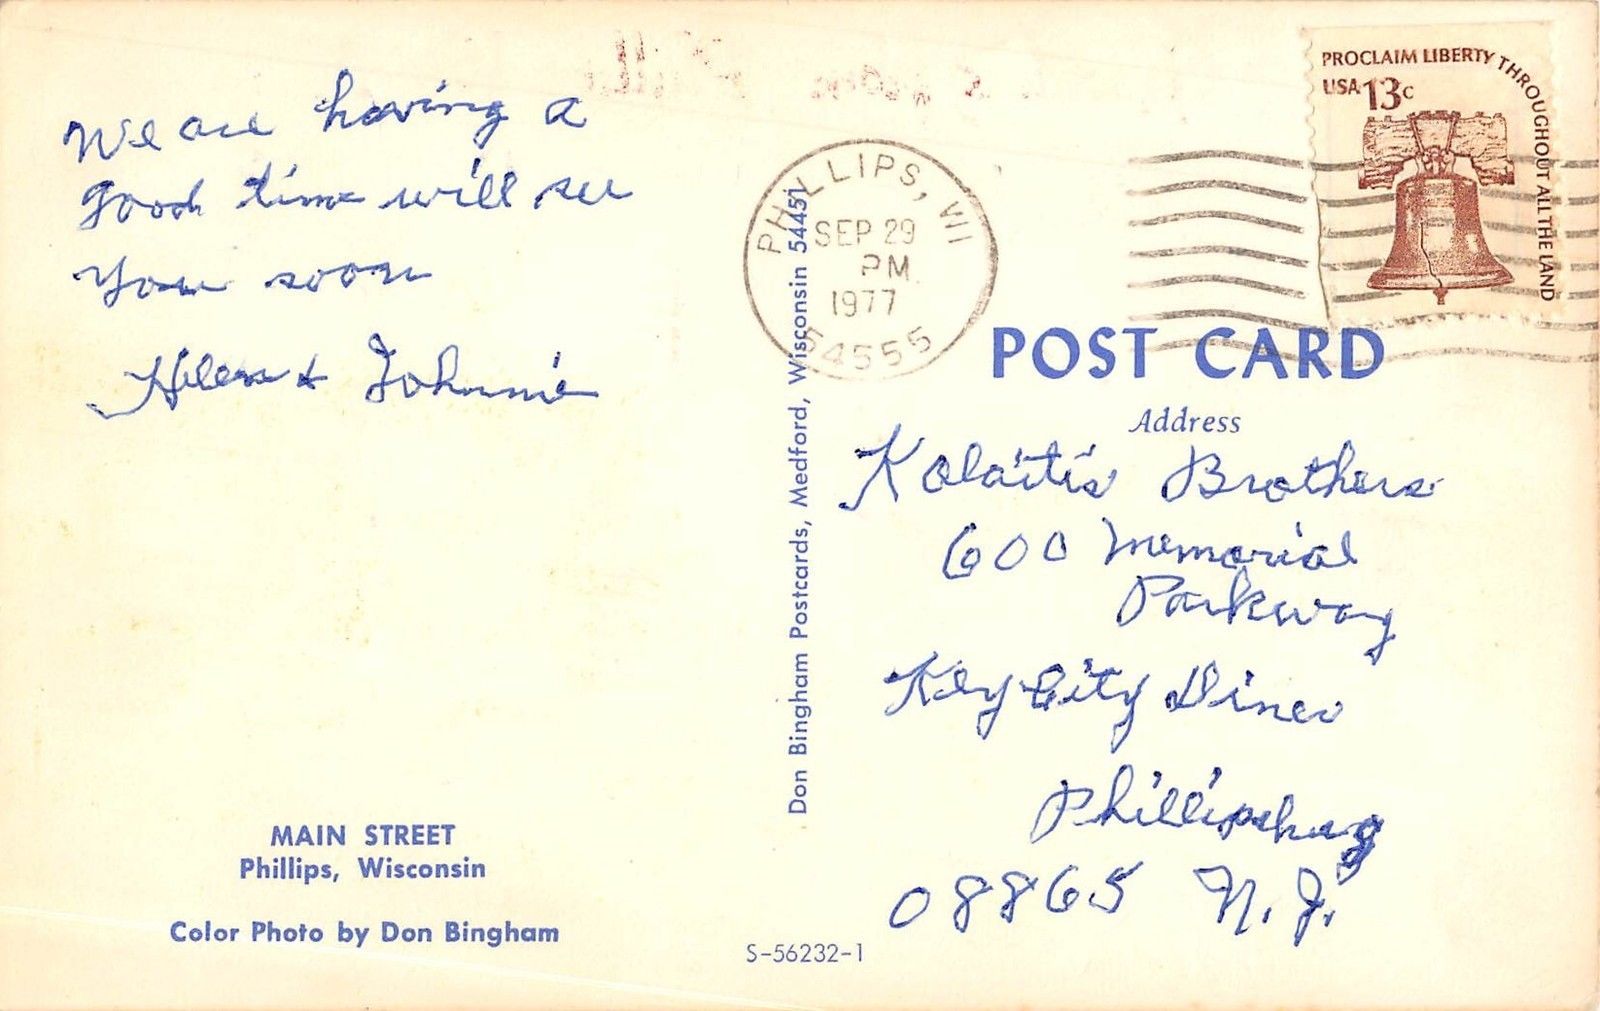 We are having a
good time will see
you soon
Helen & Johnnie
MAIN STREET
Phillips, Wisconsin
Color Photo by Don Bingham
Don Bingham Postcards, Medford, Wisconsin 54451
S-56232-1
PHILLIPS, WI
SEP 29
PM
1977
54555
PROCLAIM LIBERTY THROUGHOUT ALL THE LAND
USA 13c
POST CARD
Address
Kolaitis Brothers
600 Memorial
Parkway
Key City Diner
Phillipsburg
08865 N.J.